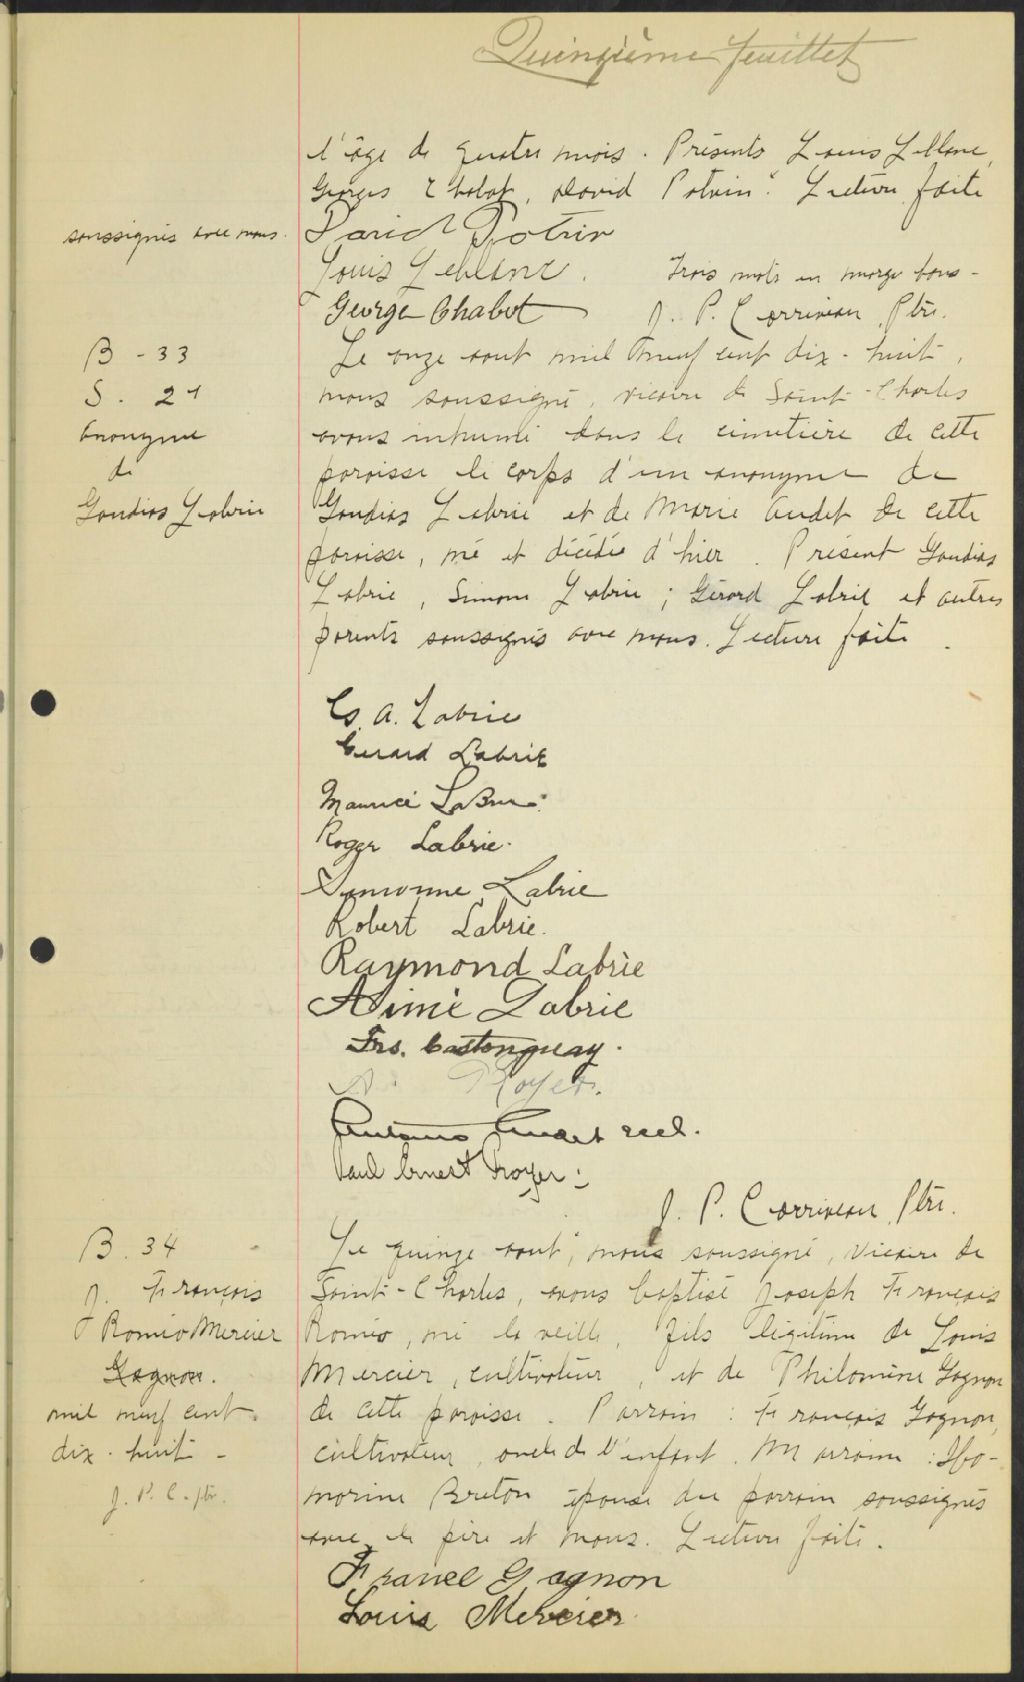 Quinzième feuillet
l'âge de quatre mois. Présents Louis Leblanc,
Georges Chabot, David Potvin. Lecture faite
soussignés avec nous.
David Potvin
Louis Leblanc.
Trois mots en marge bons -
George Chabot
J. P. Corriveau, Ptre.
B - 33
S. 21
Anonyme
de
Gaudias Labrie
Le onze août mil neuf cent dix-huit,
nous soussigné, vicaire de Saint-Charles
avons inhumé dans le cimetière de cette
paroisse le corps d'un anonyme de
Gaudias Labrie et de Marie Audet de cette
paroisse, né et décédé d'hier. Présent Gaudias
Labrie, Simone Labrie; Gérard Labrie et autres
parents soussignés avec nous. Lecture faite.
A. Labrie
Gerard Labrie
Maurice LaBrie
Roger Labrie.
Simonne Labrie
Robert Labrie.
Raymond Labrie
Aimé Labrie
Frs. Castonguay.
A. Royer.
Audet
Paul Ernest Royer
J. P. Corriveau, Ptre.
B. 34
J. François
Roméo Mercier
Gagnon.
mil neuf cent
dix-huit -
J. P. C. ptr.
Le quinze août, nous soussigné, vicaire de
Saint-Charles, avons baptisé Joseph François
Roméo, né la veille, fils légitime de Louis
Mercier, cultivateur, et de Philomène Gagnon
de cette paroisse. Parrain: François Gagnon,
cultivateur, oncle de l'enfant. Marraine:
Breton épouse du parrain soussignés
avec le père et nous. Lecture faite.
Gagnon
Louis Mercier